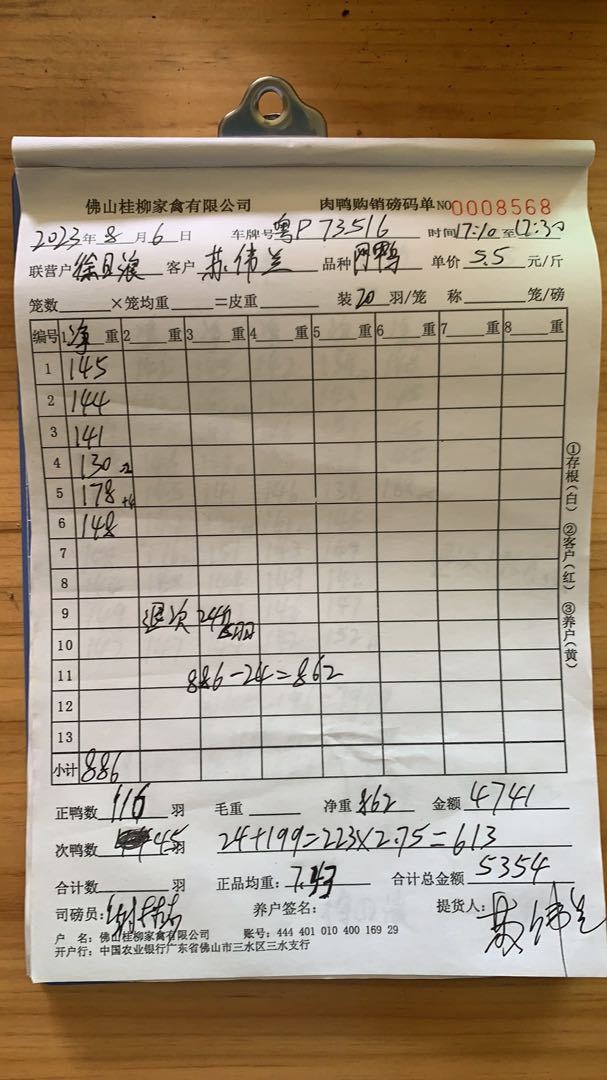 佛山桂柳家禽有限公司 肉鸭购销磅码单 NO 0008568
2023年 8 月 6 日 车牌号 粤P73516 时间 17:10 至 17:30
联营户 徐日浪 客户 苏伟兰 品种 网鸭 单价 5.5 元/斤
笼数 ×笼均重 =皮重 装 20 羽/笼 称 笼/磅
编号 1 净 重 2 重 3 重 4 重 5 重 6 重 7 重 8 重
1 145
2 144
3 141
4 130 -2
5 178 +4
6 148
7
8
9 退次 24斤
10
11 886-24=862
12
13
小计 886
①存根(白) ②客户(红) ③养户(黄)
正鸭数 116 羽 毛重 净重 862 金额 4741
次鸭数 45 羽 24+199=223×2.75=613
合计数 羽 正品均重: 7.43 合计总金额 5354
司磅员: 养户签名: 提货人: 苏伟兰
户 名: 佛山桂柳家禽有限公司 账号: 444 401 010 400 169 29
开户行: 中国农业银行广东省佛山市三水区三水支行